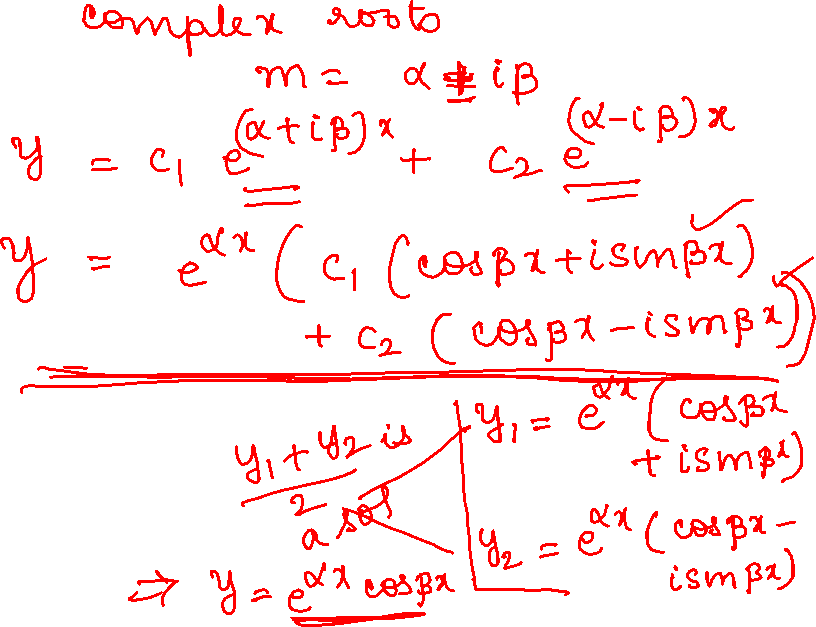 complex roots
m = α ± iβ
y = c₁ e^(α+iβ)x + c₂ e^(α-iβ)x
y = e^αx ( c₁ (cosβx + isinβx)
+ c₂ (cosβx - isinβx))
y₁ + y₂ is
2
a sol
⇒ y = e^αx cosβx
y₁ = e^αx ( cosβx
+ isinβx)
y₂ = e^αx ( cosβx -
isinβx)